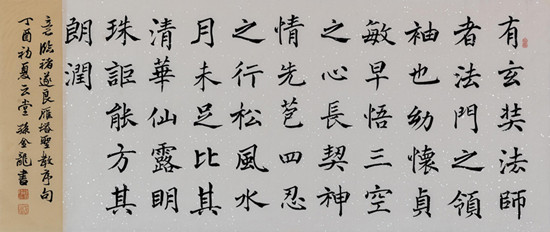 有玄奘法師
者法門之領
袖也幼懷貞
敏早悟三空
之心長契神
情先苞四忍
之行松風水
月未足比其
清華仙露明
珠詎能方其
朗潤
意臨褚遂良雁塔聖教序句
丁酉初夏云堂孫金龍書